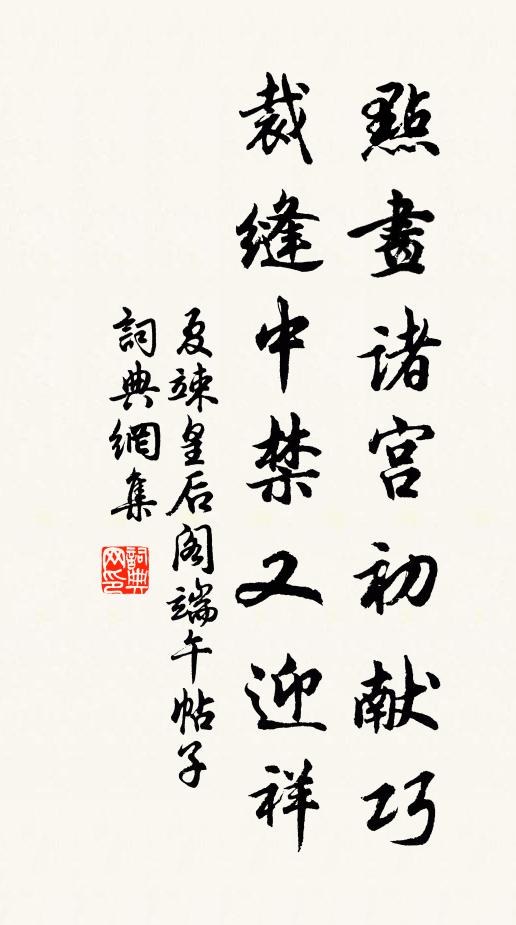 點畫诸宫初献巧
裁縫中禁又迎祥
夏竦皇后阁端午帖子
詞典網集
詞典网印